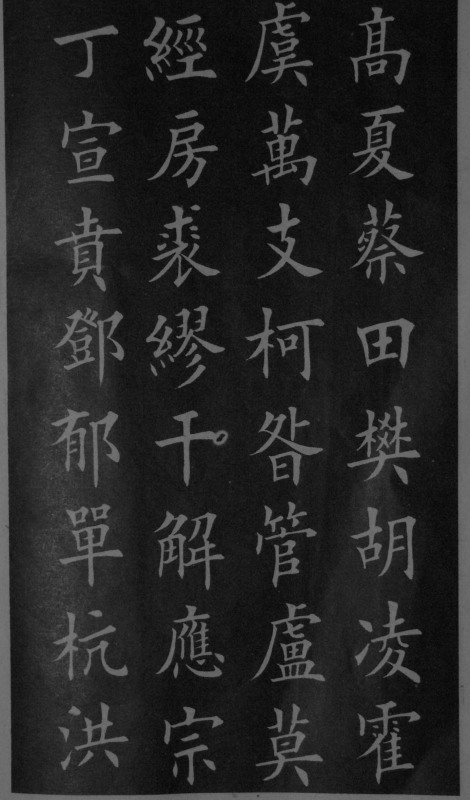 高夏蔡田樊胡凌霍
虞萬支柯昝管盧莫
經房裘繆干解應宗
丁宣賁鄧郁單杭洪